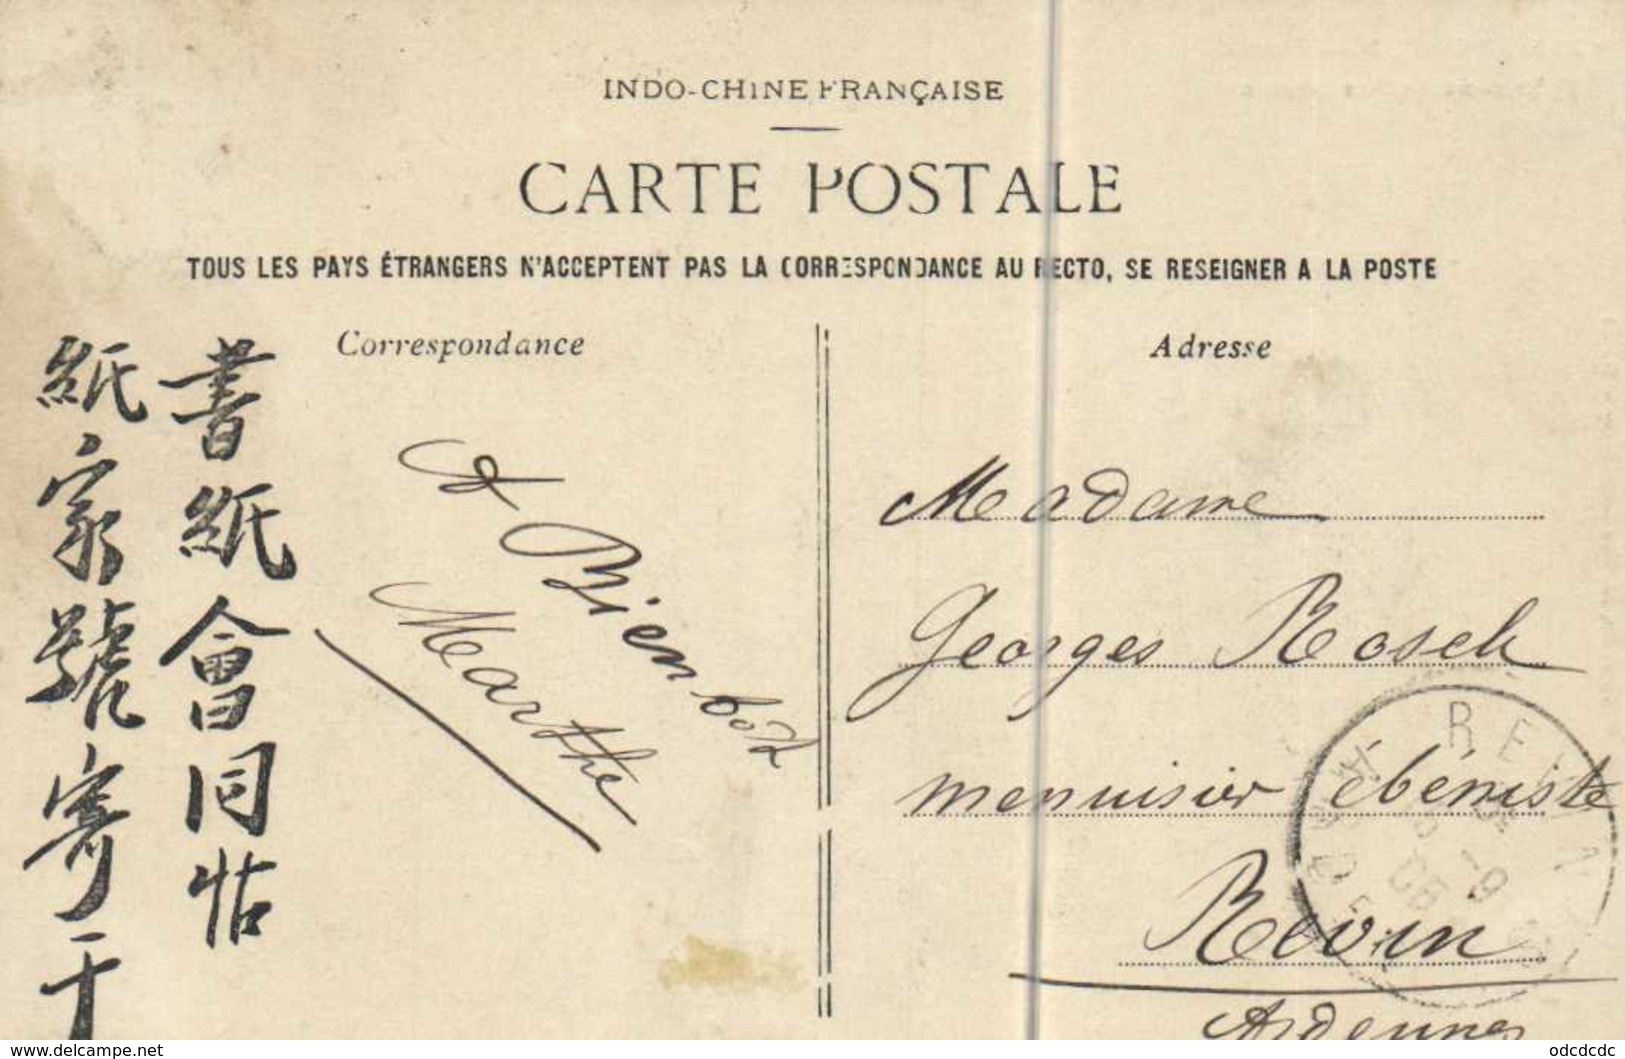 INDO-CHINE FRANÇAISE
CARTE POSTALE
TOUS LES PAYS ÉTRANGERS N'ACCEPTENT PAS LA CORRESPONDANCE AU RECTO, SE RESEIGNER A LA POSTE
Correspondance
Adresse
書紙會同帖
紙家號寄于
A Bientôt
Marthe
Madame
Georges Rosch
menuisier ébéniste
Revin
Ardennes
REVIN
Website : www.delcampe.net
odcdcdc